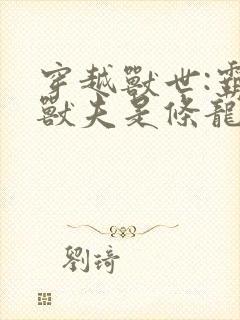 穿越獸世:霸
獸夫是條龍
劉琦